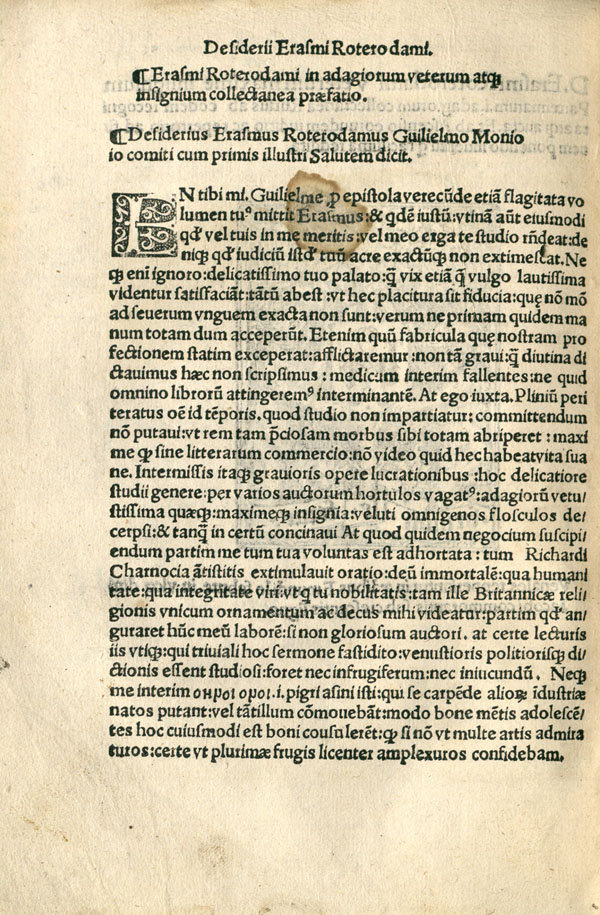 Desiderii Erasmi Roterodami.
¶Erasmi Roterodami in adagiorum veterum atqꝫ
insignium collectanea præfatio.
¶Desiderius Erasmus Roterodamus Guilielmo Monio
io comiti cum primis illustri Salutem dicit.
EN tibi mi. Guilielme ꝑ epistola verecũde etiã flagitata vo
lumen tuꝰ mittit Erasmus:& qdẽ iustũ:vtinã aũt eiusmodi
qđ vel tuis in me meritis:vel meo erga te studio rñdeat:de
niqꝫ qđ iudiciũ istđ tuũ acre exactũqꝫ non extimescat. Ne
qꝫ eni ignoro:delicatissimo tuo palato:q̃ vix etiã q̃ vulgo lautissima
videntur satisfaciãt:tãtũ abest:vt hec placitura sit fiducia:quę nõ mõ
ad seuerum vnguem exacta non sunt:verum ne primam quidem ma
num totam dum acceperũt. Etenim quũ fabricula quę nostram pro
fectionem statim exceperat:afflictaremur:non tã graui:q̃ diutina di
ctauimus hæc non scripsimus: medicum interim fallentes:ne quid
omnino librorũ attingeremꝰ interminantẽ. At ego iuxta. Pliniũ peri
teratus oẽ id tẽporis.quod studio non impartiatur: committendum
nõ putaui:vt rem tam p̃ciosam morbus sibi totam abriperet: maxi
me qꝫ sine litterarum commercio:nõ video quid hec habeat vita sua
ue. Intermissis itaqꝫ grauioris opere lucrationibus:hoc delicatiore
studii genere:per varios auctorum hortulos vagatꝰ:adagiorũ vetu/
stissima quæqꝫ:maximeqꝫ insignia:veluti omnigenos flosculos de/
cerpsi:& tanq̃ in certũ concinaui At quod quidem negocium suscipi/
endum partim me tum tua voluntas est adhortata: tum Richardi
Charnocia ãtistitis extimulauit oratio:deũ immortalẽ:qua humani
tate:qua integritate viri:vt qꝫ tu nobilitatis:tam ille Britannicæ reli/
gionis vnicum ornamentum ac decus mihi videatur:partim qđ an/
guraret hũc meũ laborẽ:si non gloriosum auctori. at certe lecturis
iis vtiqꝫ:qui triuiali hoc sermone fastidito:venustioris politiorisqꝫ di/
ctionis essent studiosi:foret nec infrugiferum:nec iniucundũ. Neqꝫ
me interim ονηροι οροι.i.pigri asini isti:qui se carpẽde alioꝝ ĩdustriæ
natos putant:vel tãtillum cõmouebãt:modo bone mẽtis adolescẽ/
tes hoc cuiusmodi est boni cousulerẽt:qꝫ si nõ vt multe artis admira
turos:certe vt plurimæ frugis licenter amplexuros confidebam.